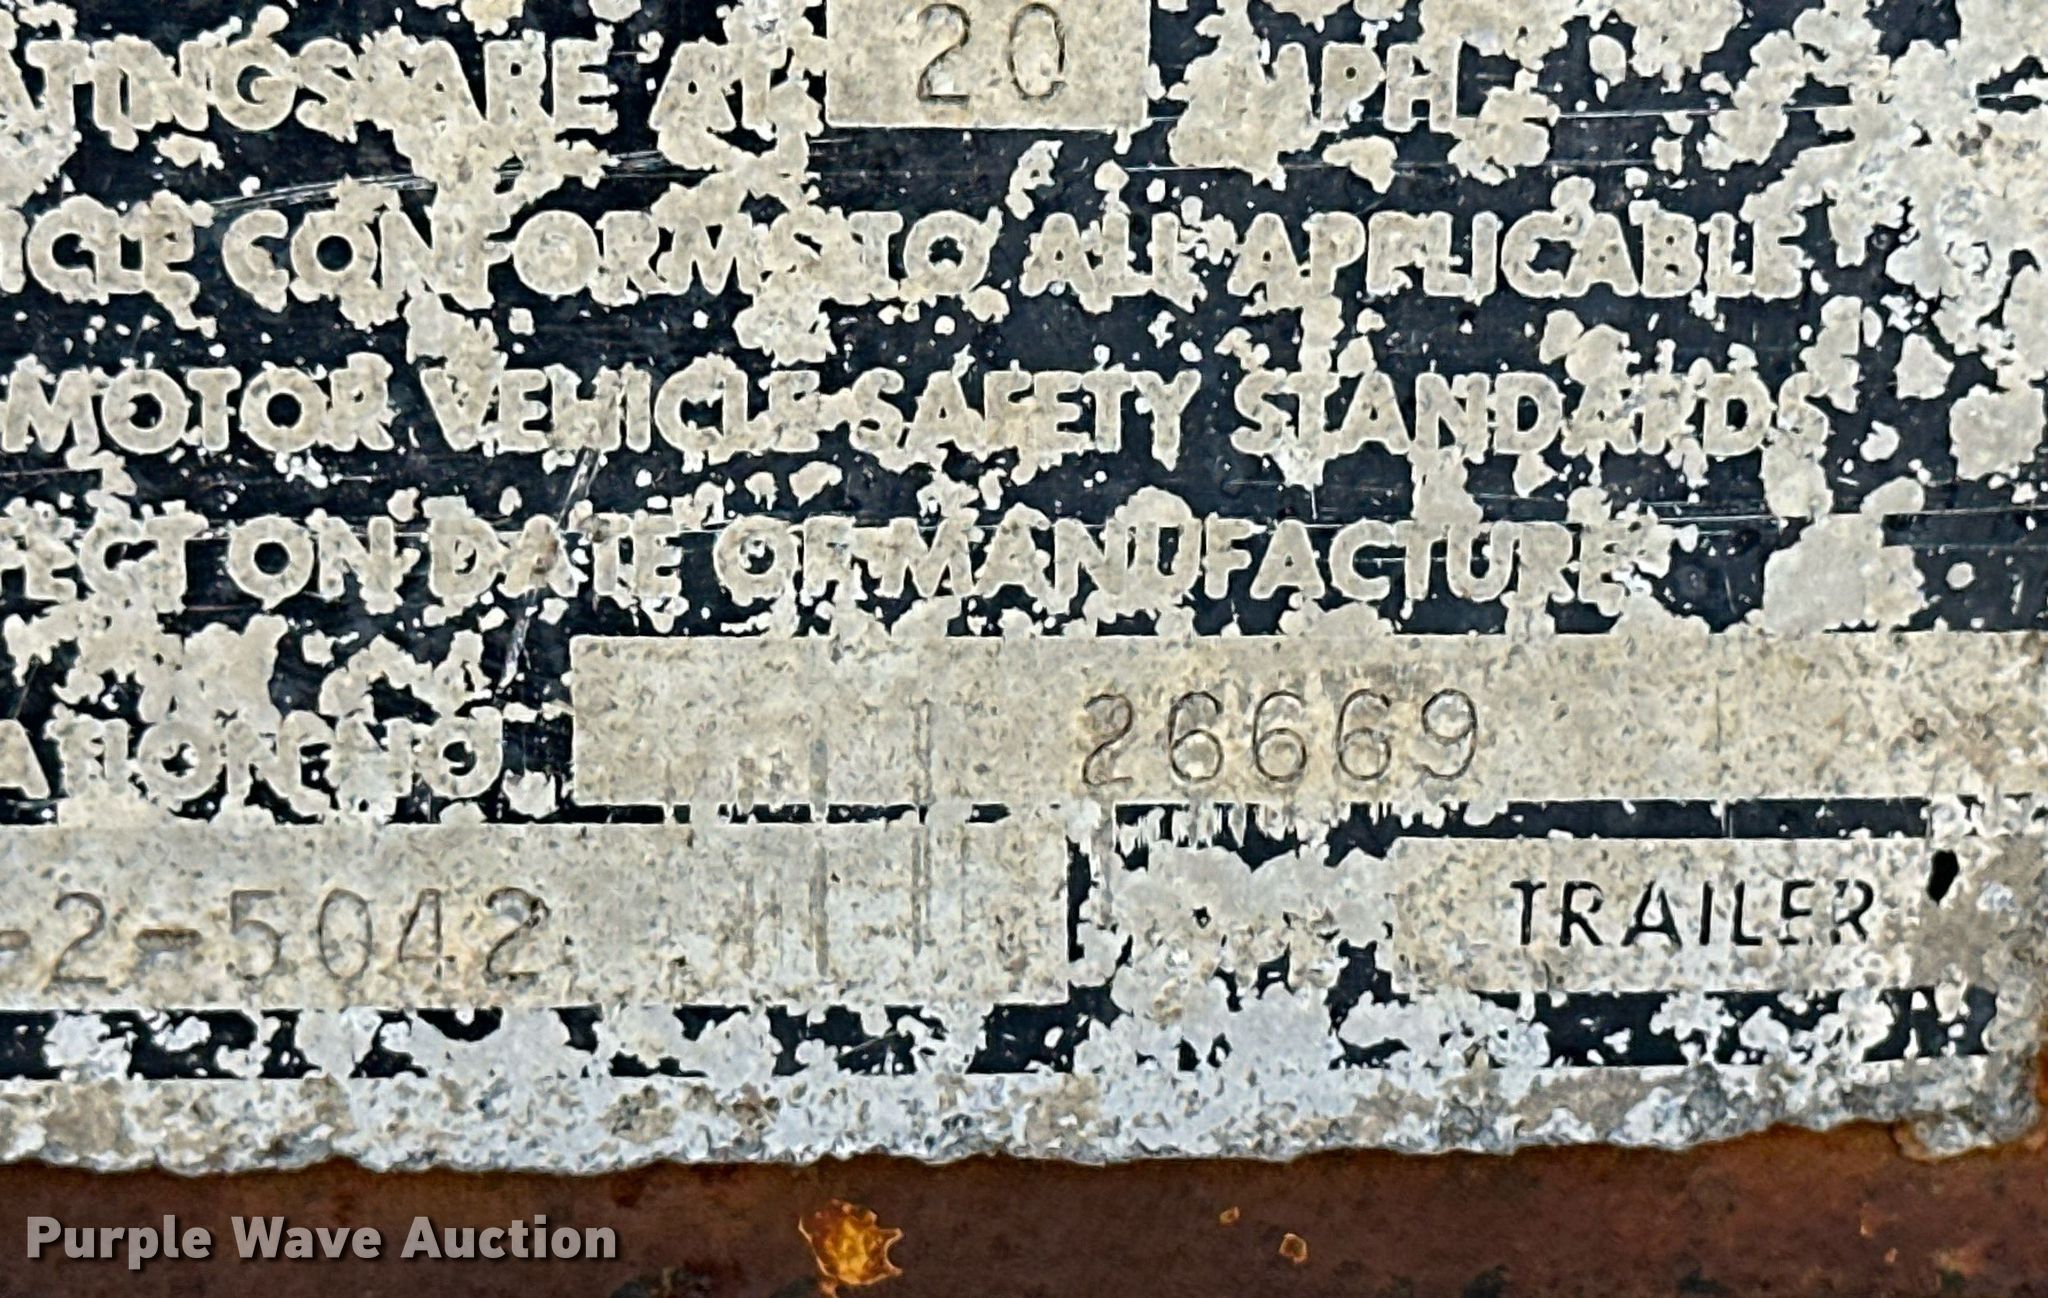 ATINGS ARE AT 20 MPH
ICLE CONFORMS TO ALL APPLICABLE
MOTOR VEHICLE SAFETY STANDARDS
FECT ON DATE OF MANUFACTURE
26669
-2-5042 TRAILER
Purple Wave Auction